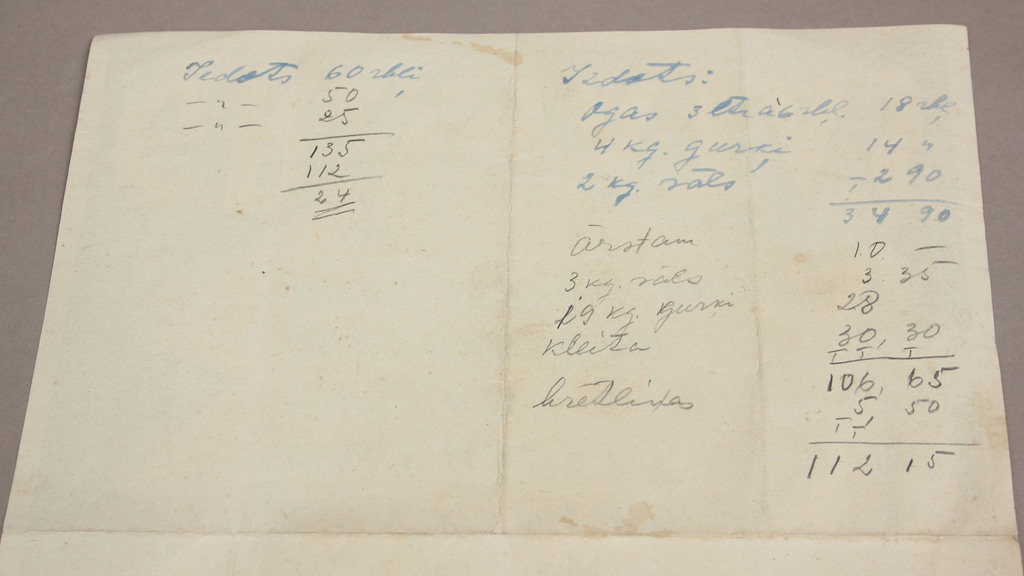 Iedots 60 rbļi
— „ — 50
— „ — 25
135
112
24
Izdots:
Ogas 3 ltr à 6 rbļ. 18 rbļ
4 kg. gurķi 14 „
2 kg. sāls 2 90
34 90
ārstam 10 —
3 kg. sāls 3 35
19 kg. gurķi 28
kleita 30, 30
106, 65
5, 50
112 15